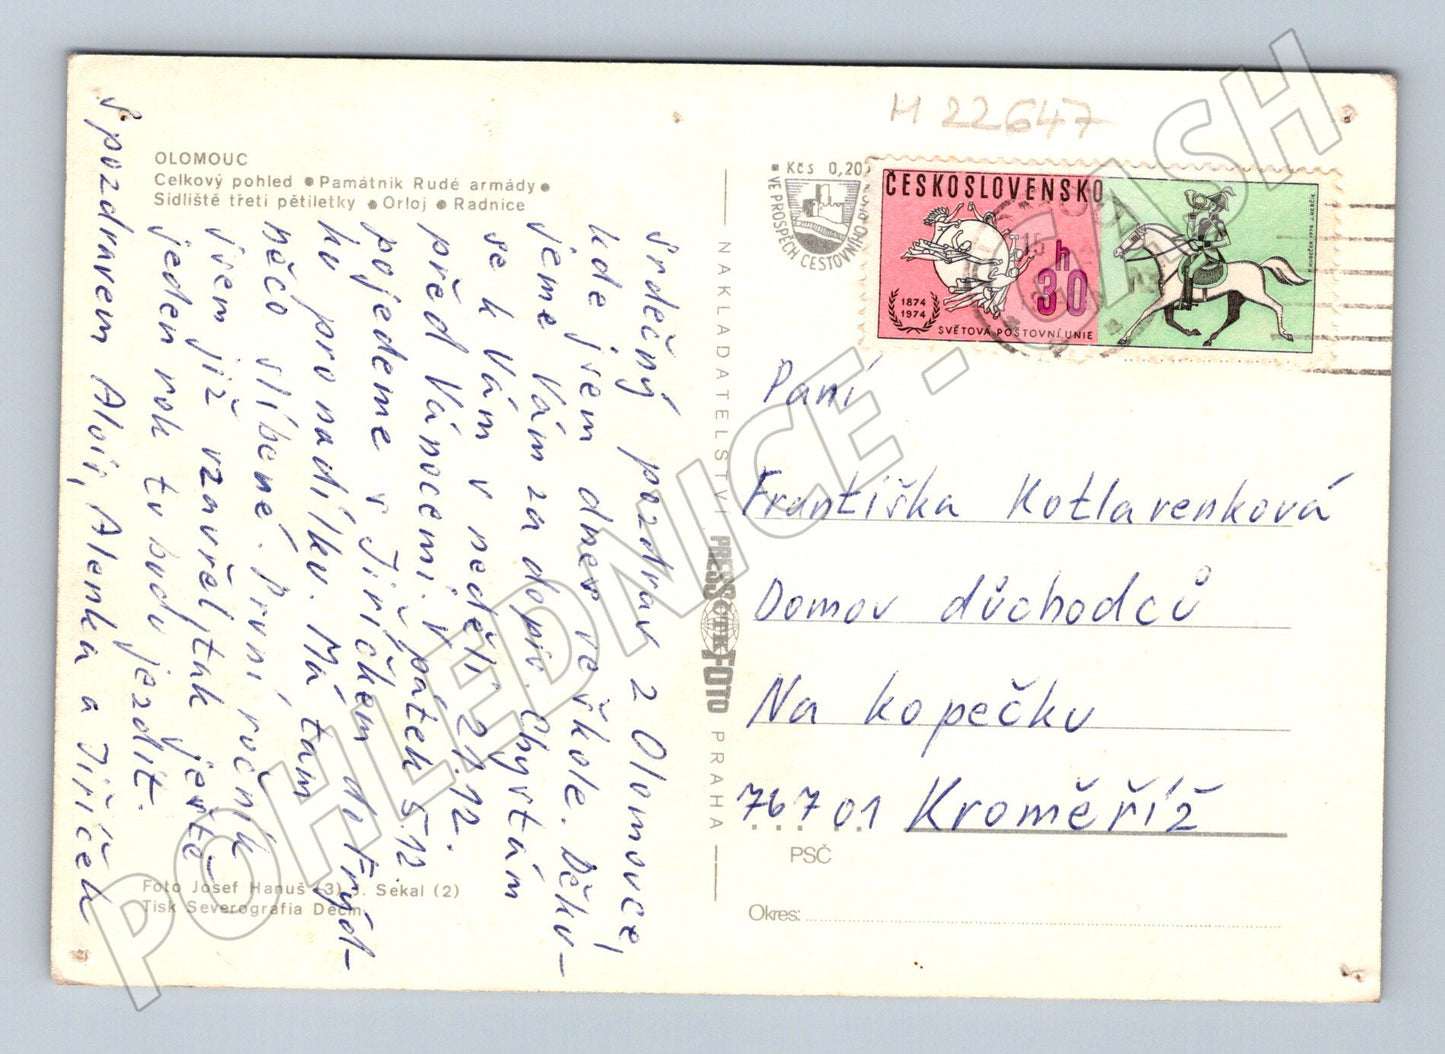 M 22647
OLOMOUC
Celkový pohled ● Památník Rudé armády ●
Sídliště třetí pětiletky ● Orloj ● Radnice
Srdečný pozdrav z Olomouce,
kde jsem dnes ve škole. Děku-
jeme Vám za dopis. Chystám
se k Vám v neděli 21.12.
před Vánocemi. V pátek 5.12
pojedeme s Jiříčkem do Frýd-
ku pro nadílku. Má tam
něco slíbené. První ročník
jsem již uzavřel, tak ještě
jeden rok tu budu jezdit.
S pozdravem Alois, Alenka a Jiříček
Foto Josef Hanuš (3) J. Sekal (2)
Tisk Severografia Děčín
NAKLADATELSTVÍ
PRESSFOTO
PRAHA
Kčs 0,20
VE PROSPĚCH CESTOVNÍHO
ČESKOSLOVENSKO
30 h
1874
1974
SVĚTOVÁ POŠTOVNÍ UNIE
15
Paní
Františka Kotlarenková
Domov důchodců
Na kopečku
76701 Kroměříž
PSČ
Okres:
POHLEDNICE - CASH